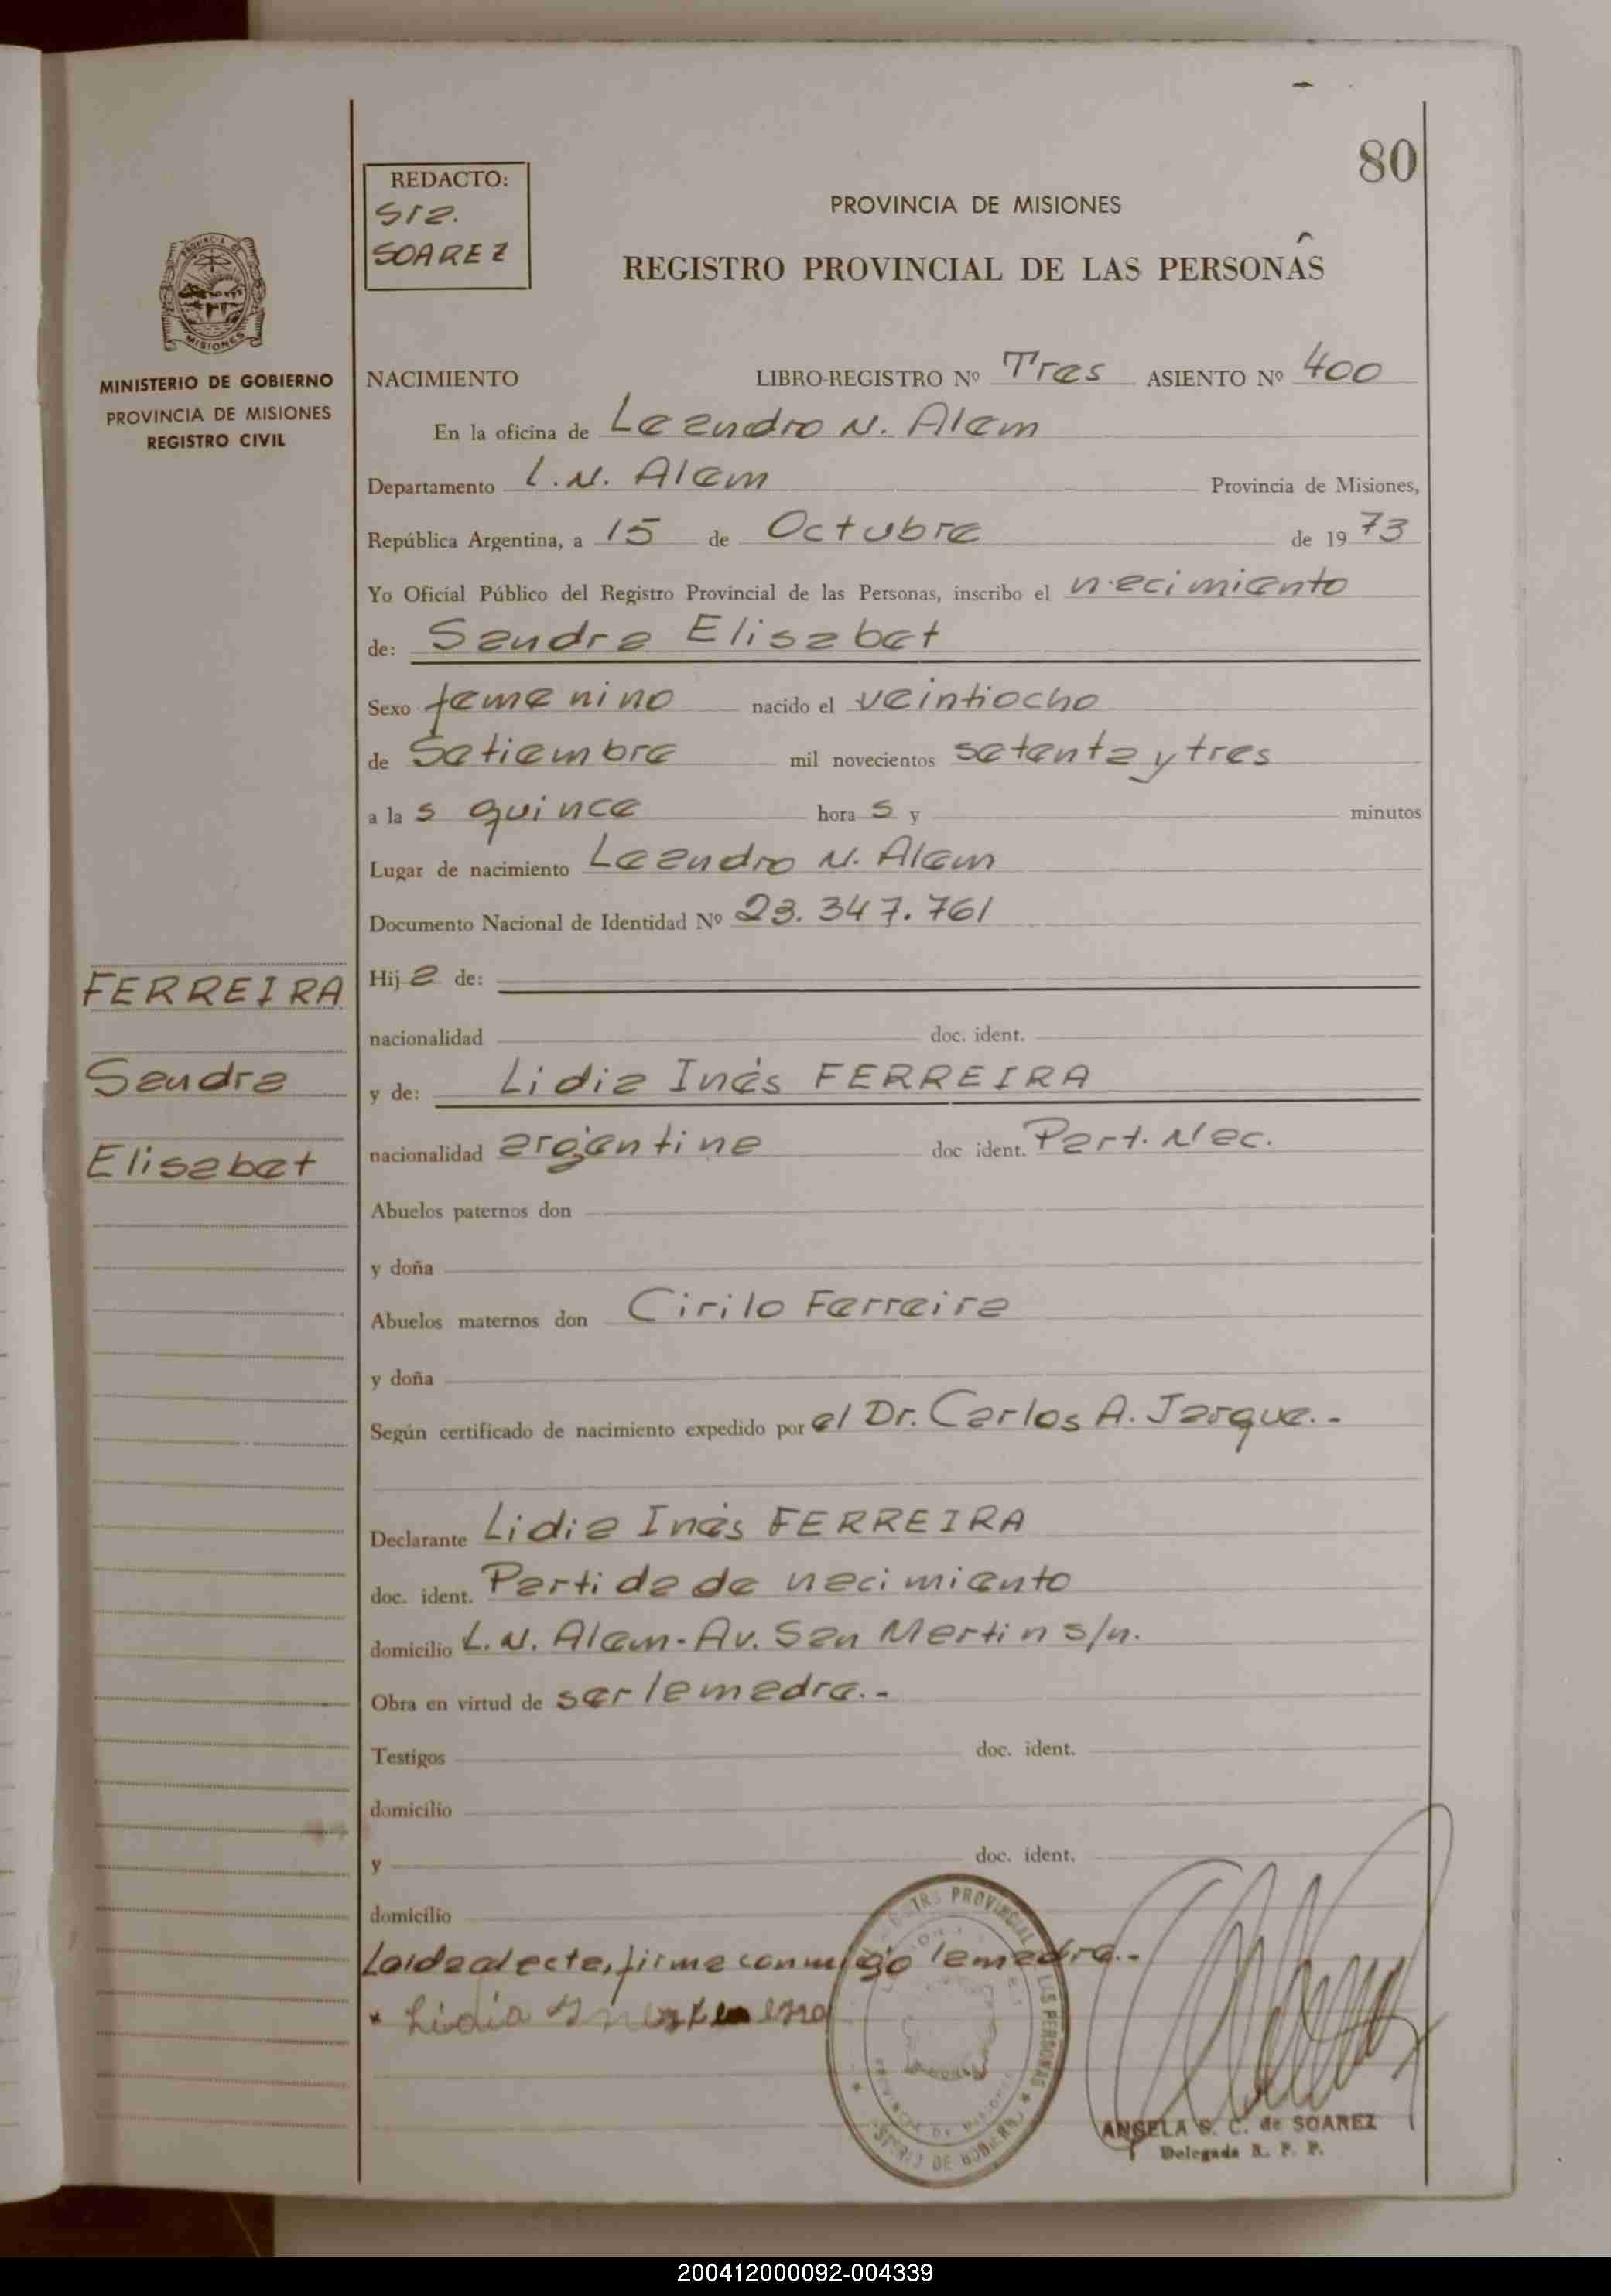 80
REDACTO:
Sra.
SOAREZ
PROVINCIA DE MISIONES
REGISTRO PROVINCIAL DE LAS PERSONAS
MISIONES
MINISTERIO DE GOBIERNO
PROVINCIA DE MISIONES
REGISTRO CIVIL
NACIMIENTO LIBRO-REGISTRO Nº Tres ASIENTO Nº 400
En la oficina de Leandro N. Alem
Departamento L.N. Alem Provincia de Misiones,
República Argentina, a 15 de Octubre de 1973
Yo Oficial Público del Registro Provincial de las Personas, inscribo el nacimiento
de: Sandra Elisabet
Sexo femenino nacido el veintiocho
de Setiembre mil novecientos setenta y tres
a las quince horas y minutos
Lugar de nacimiento Leandro N. Alem
Documento Nacional de Identidad Nº 23.347.761
FERREIRA
Sandra
Elisabet
Hija de:
nacionalidad doc. ident.
y de: Lidia Inés FERREIRA
nacionalidad argentina doc ident. Part. Nac.
Abuelos paternos don
y doña
Abuelos maternos don Cirilo Ferreira
y doña
Según certificado de nacimiento expedido por el Dr. Carlos A. Jarque.-
Declarante Lidia Inés FERREIRA
doc. ident. Partida de nacimiento
domicilio L.N. Alem-Av. San Martin s/n.
Obra en virtud de ser la madre.-
Testigos doc. ident.
domicilio
y doc. ident.
domicilio
Leida el acta, firma conmigo la madre.-
Lidia
PROVINCIAL
LAS PERSONAS
PROVINCIA DE MISIONES
DE GOBIERNO
ANGELA S. C. de SOAREZ
Delegada R. P. P.
200412000092-004339